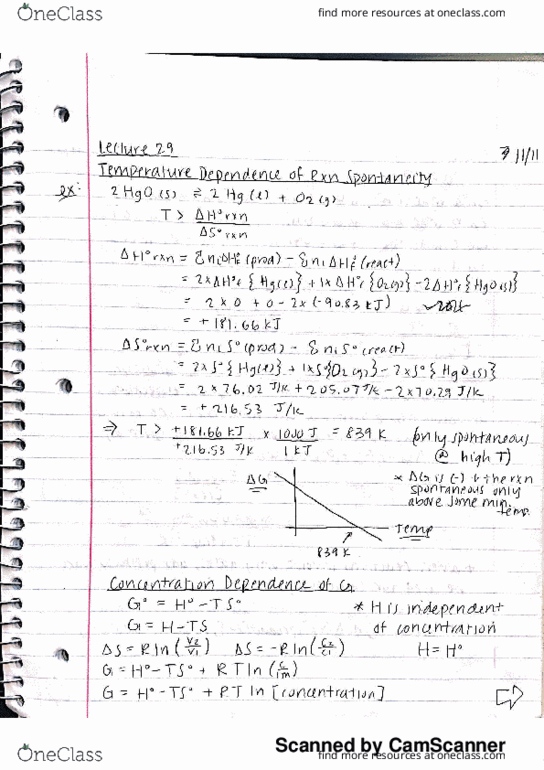 OneClass
find more resources at oneclass.com
Lecture 29
11/11
Temperature Dependence of Rxn Spontaneity
ex: 2 HgO (s) ⇌ 2 Hg (l) + O₂ (g)
T > ΔH°rxn / ΔS°rxn
ΔH°rxn = Σ niΔH°f (prod) - Σ niΔH°f (react)
= 2×ΔH°f {Hg(l)} + 1×ΔH°f {O₂(g)} - 2ΔH°f {HgO(s)}
= 2 × 0 + 0 - 2 × (-90.83 kJ)
= +181.66 kJ
ΔS°rxn = Σ niS° (prod) - Σ niS° (react)
= 2×S° {Hg(l)} + 1×S° {O₂(g)} - 2×S° {HgO(s)}
= 2 × 76.02 J/K + 205.07 J/K - 2 × 70.29 J/K
= +216.53 J/K
⇒ T > +181.66 kJ / +216.53 J/K × 1000 J / 1 kJ = 839 K (only spontaneous
@ high T)
ΔG
* ΔG is (-) + the rxn
spontaneous only
above some min.
temp.
Temp
839 K
Concentration Dependence of G
G° = H° - TS°
* H is independent
G = H - TS
of concentration
ΔS = R ln (V₂/V₁) ΔS = -R ln (C₂/C₁) H = H°
G = H° - TS° + RT ln (C/1M)
G = H° - TS° + RT ln [concentration]
Scanned by CamScanner
OneClass
find more resources at oneclass.com